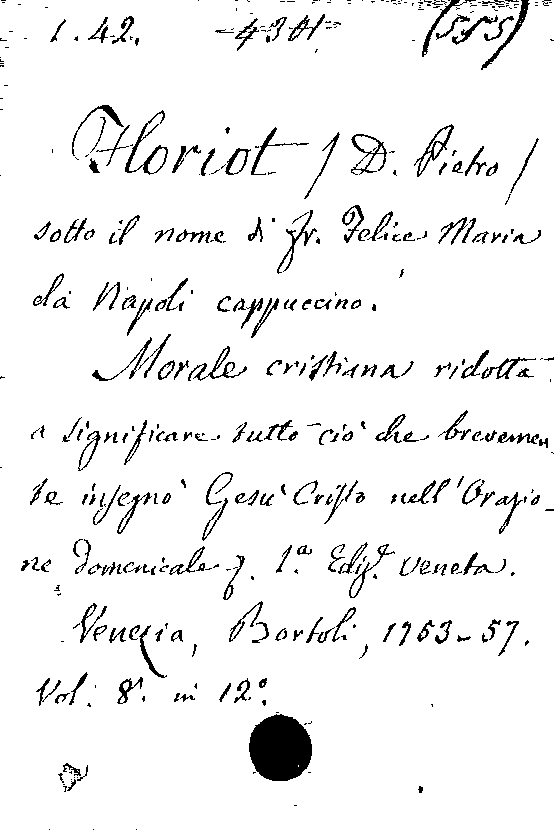 1.42. 4301. (555)
Floriot / D. Pietro /
sotto il nome di fr. Felice Maria
da Napoli cappuccino.
Morale cristiana ridotta
a significare tutto ciò che brevemen
te insegnò Gesù Cristo nell'Orazio-
ne domenicale 1ª Ediz.e veneta.
Venezia, Bortoli, 1753-57.
Vol. 8. in 12º.